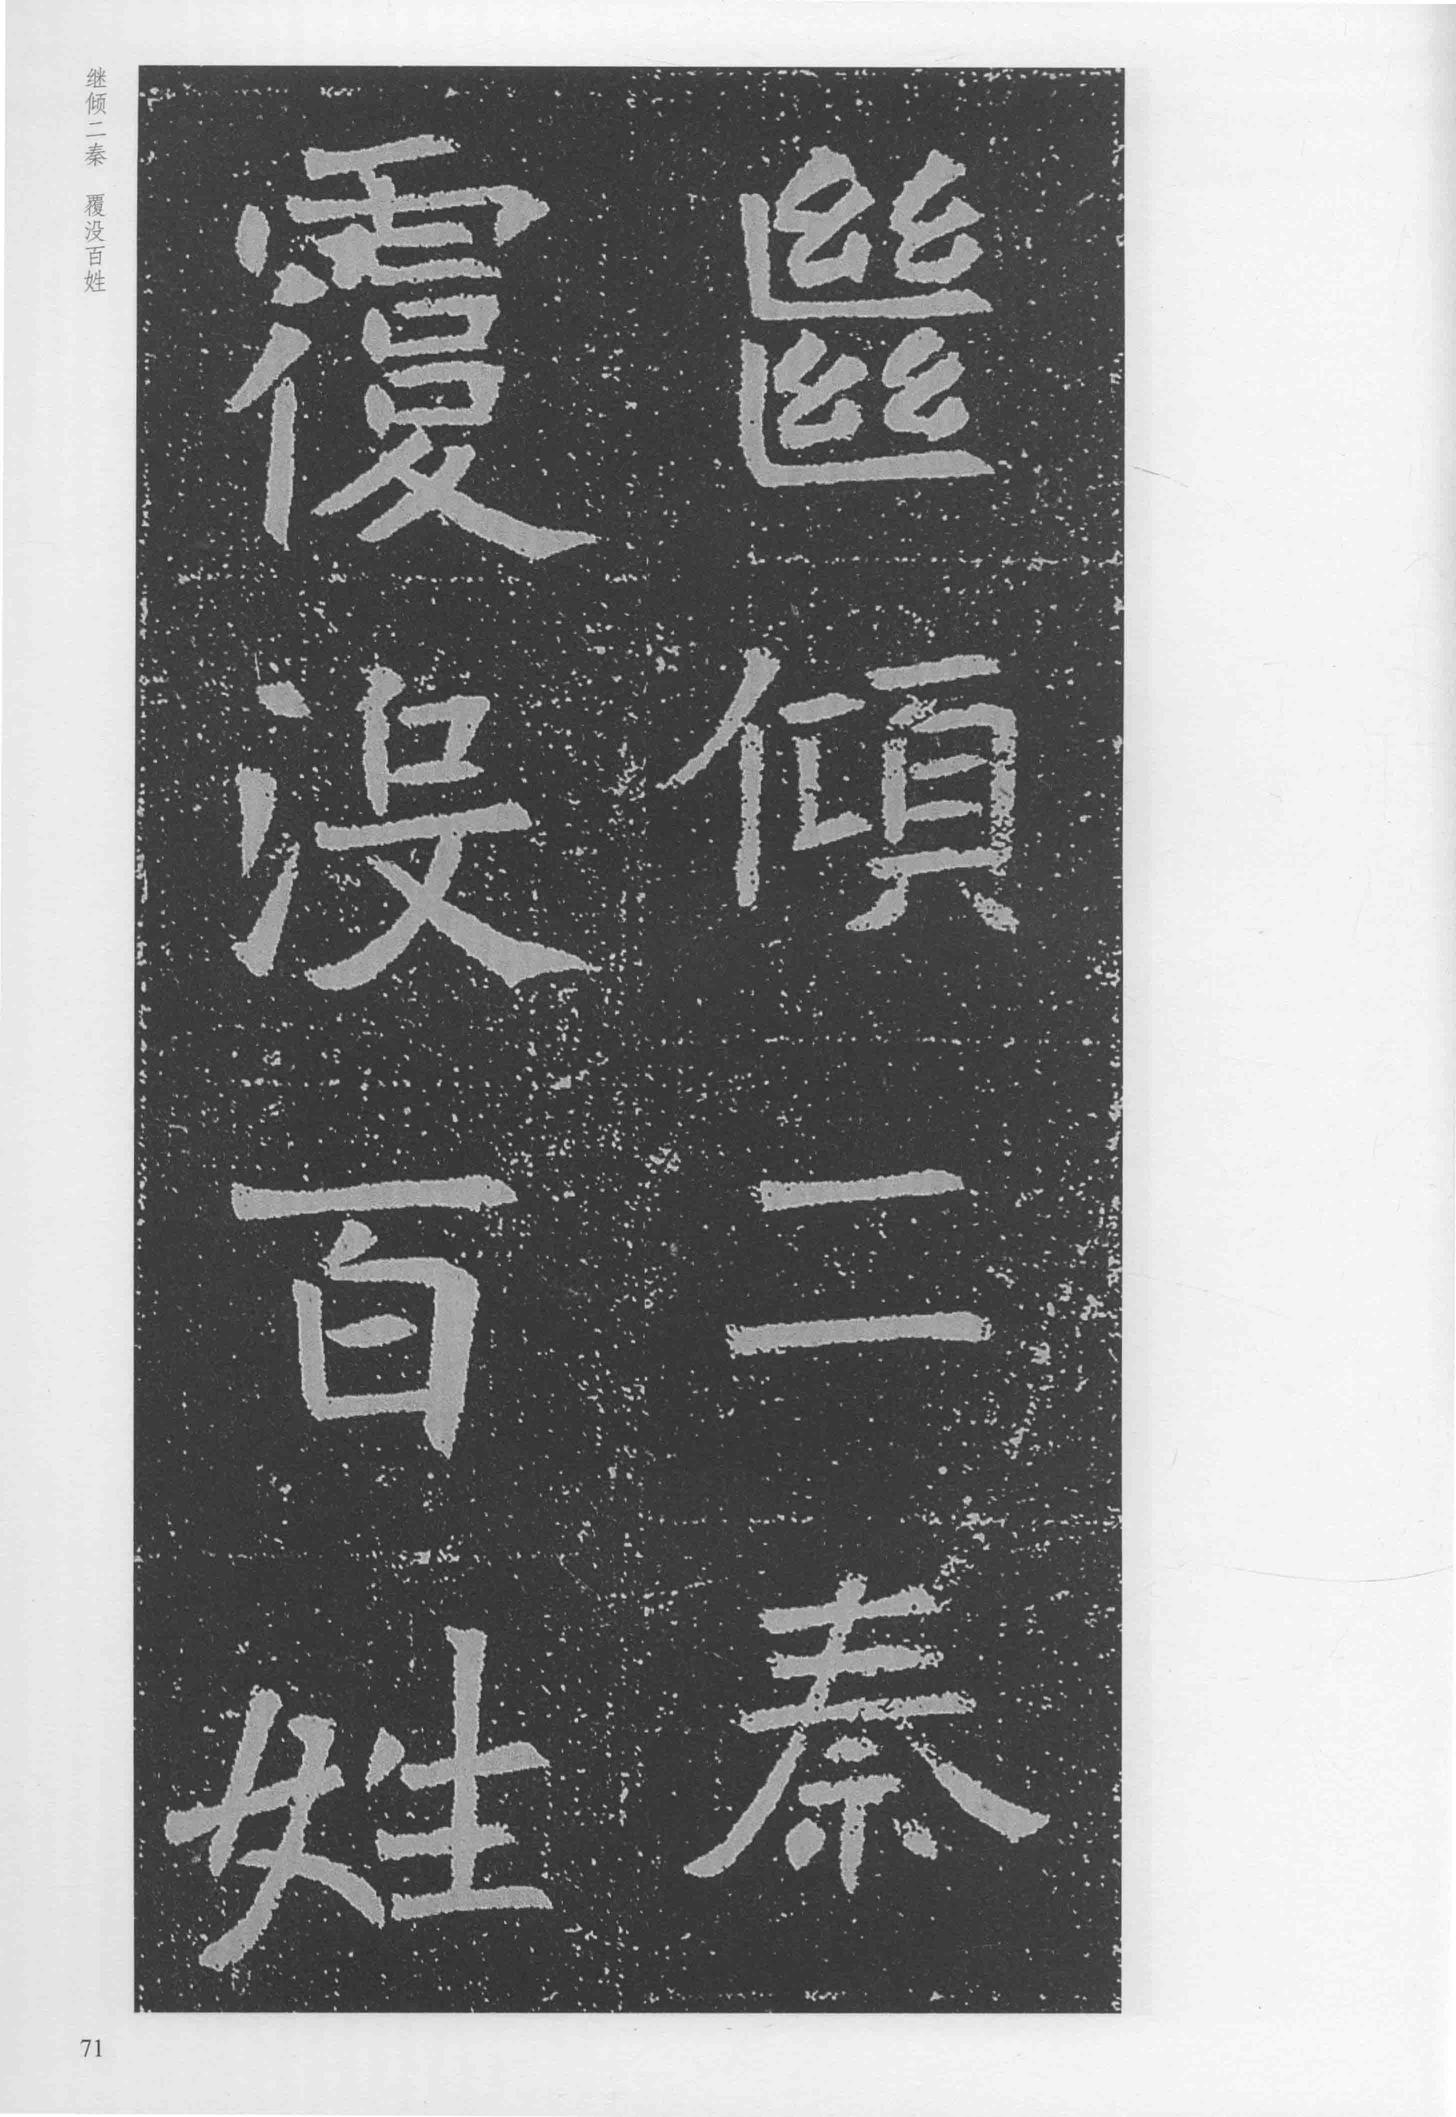 㡭傾二秦
覆没百姓
继倾二秦　覆没百姓
71